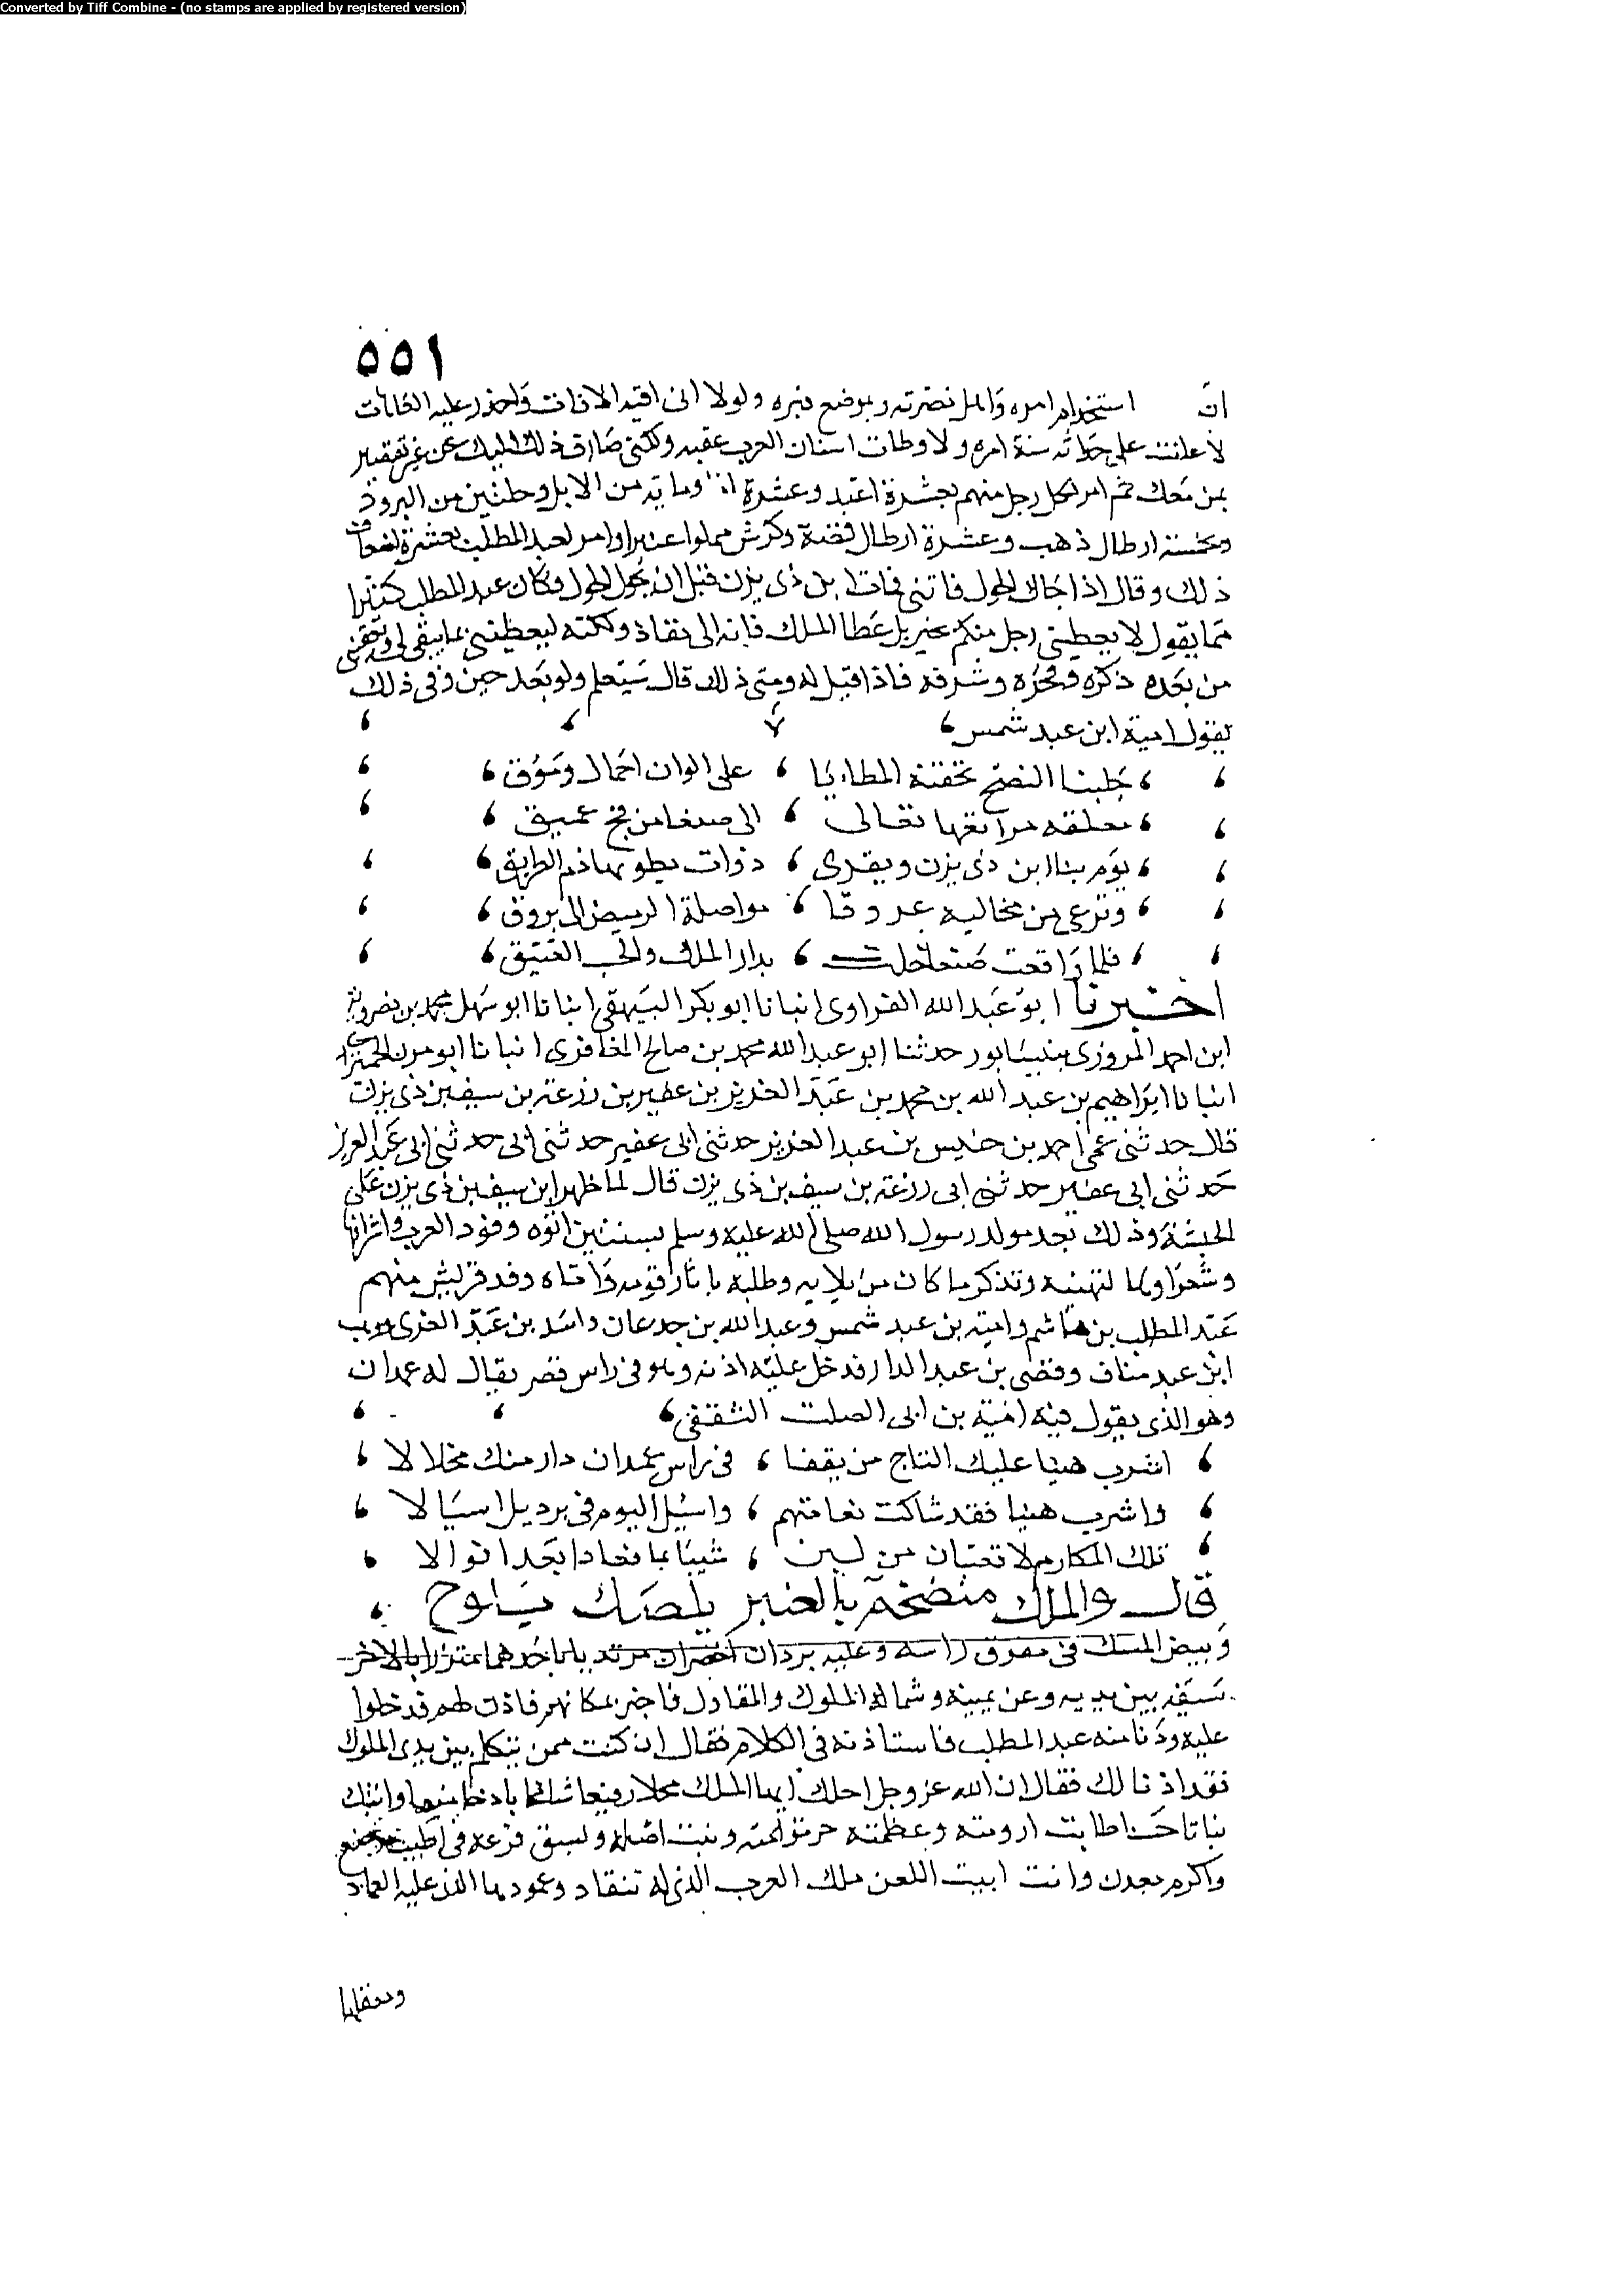 Converted by Tiff Combine - (no stamps are applied by registered version)
٥٥١
ان استخدام امره واهل نصرته وبموضع قبره ولولا انى اقيه الافات واحذر عليه العاهات
لاعلنت على حداثه سنة امره ولاوطات اسنان العرب عقبه ولكنى صارف ذلك اليك عن غير تقصير
بمن معك ثم امر لكل رجل منهم بعشرة اعبد وعشرة اما وماية من الابل وحلتين من البرود
وبخمسة ارطال ذهب وعشرة ارطال فضة وكرش مملوا عنبرا وامر لعبد المطلب بعشرة اضعاف
ذلك وقال اذا حال الحول فاتنى فمات ابن ذى يزن قبل ان يحول الحول وكان عبد المطلب كثيرا
مما يقول لا يغبطنى رجل منكم بجزيل عطا الملك فانه الى نفاذ ولكنه ليغبطنى بما يبقى لى ولعقبى
من بعده ذكره وفخره وشرفه فاذا قيل له ومتى ذلك قال سيعلم ولو بعد حين وفى ذلك
يقول امية ابن عبد شمس
جلبنا النصح تحقبة المطايا على الوان اجمال ونوق
مغلغلة مراتعها تعالى الى صنعا من فج عميق
يوم بنا ابن ذى يزن ويقرى ذوات بطونها ذم الطريق
وترعى من مخاليه بروقا مواصلة الوميض الى بروق
فلما واقعت صنعا حلت بدار الملك والحسب العتيق
اخبرنا ابو عبد الله الفراوى انبانا ابو بكر البيهقى انبانا ابو سهل محمد بن نصرويه
ابن احمد المروزى بنيسابور حدثنا ابو عبد الله محمد بن صالح المعافرى انبانا ابو يزن الحميرى
انبانا ابراهيم بن عبد الله بن محمد بن عبد العزيز بن عفير بن زرعة بن سيف بن ذى يزن
قال حدثنى عمى احمد بن حبيش بن عبد العزيز حدثنى ابى عفير حدثنى ابى حدثنى ابى عبد العزيز
حدثنى ابى عفير حدثنى ابى زرعة بن سيف بن ذى يزن قال لما ظهر ابن سيف بن ذى يزن على
الحبشة وذلك بعد مولد رسول الله صلى الله عليه وسلم بسنتين اتوه وفود العرب واشرافها
وشعراوها لتهنيه وتذكر ما كان من بلايه وطلبه بثار قومه واتاه وفد قريش منهم
عبد المطلب بن هاشم وامية بن عبد شمس وعبد الله بن جدعان واسد بن عبد العزى ووهب
ابن عبد مناف وقصى بن عبد الدار فدخل عليه اذنه وهو فى راس قصر يقال له غمدان
وهو الذى يقول فيه امية بن ابى الصلت الثقفى
اشرب هنيا عليك التاج مرتفقا فى راس غمدان دار منك محلالا
واشرب هنيا فقد شالت نعامتهم واسبل اليوم فى برديك اسبالا
تلك المكارم لا قعبان من لبن شيبا بما فعادا بعد ابوالا
قال والملك متضمخ بالعنبر يلصف
وبيض المسك فى مفرق راسه وعليه بردان اخضران مرتد باحدهما متزر بالاخر
سيفه بين يديه وعن يمينه وشماله الملوك والمقاول فاخبر بمكانهم فاذن لهم فدخلوا
عليه ودنا منه عبد المطلب فاستاذنه فى الكلام فقال ان كنت ممن يتكلم بين يدى الملوك
فقد اذنا لك فقال ان الله عز وجل احلك ايها الملك محلا رفيعا شامخا باذخا منيعا وانبتك
نباتا طابت ارومته وعظمته جرثومته وثبت اصله وبسق فرعه فى اطيب موضع
واكرم معدن وانت ابيت اللعن ملك العرب الذى له تنقاد وعمودها الذى عليه العماد
ومعقلها